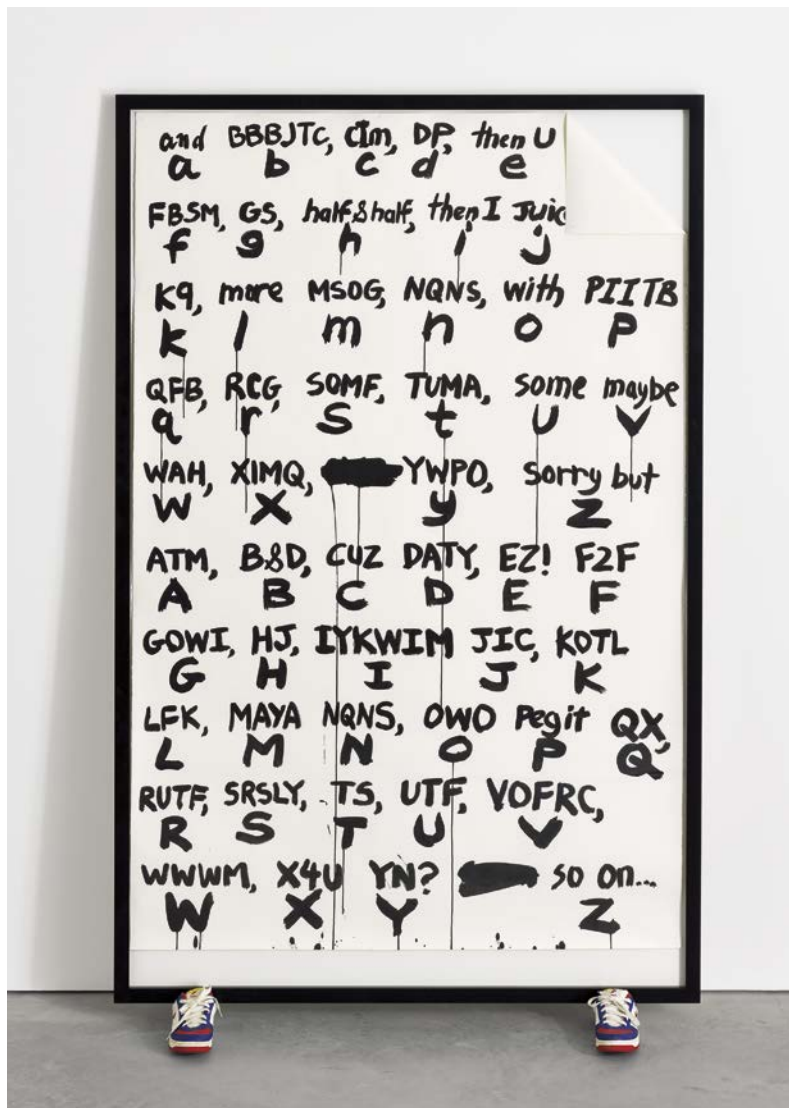 and BBBJTC, CIm, DP, then U
a b c d e
FBSM, GS, half & half, then I Juic
f g h i j
K9, more MSOG, NQNS, with PIITB
k l m n o p
QFB, RCG, SOMF, TUMA, some maybe
q r s t u v
WAH, XIMQ, YWPO, sorry but
W X y z
ATM, B&D, CUZ DATY, EZ! F2F
A B C D E F
GOWI, HJ, IYKWIM JIC, KOTL
G H I J K
LFK, MAYA NQNS, OWO Pegit QX,
L M N O P Q
RUTF, SRSLY, TS, UTF, VOFRC,
R S T U V
WWWM, X4U YN? so on...
W X Y Z